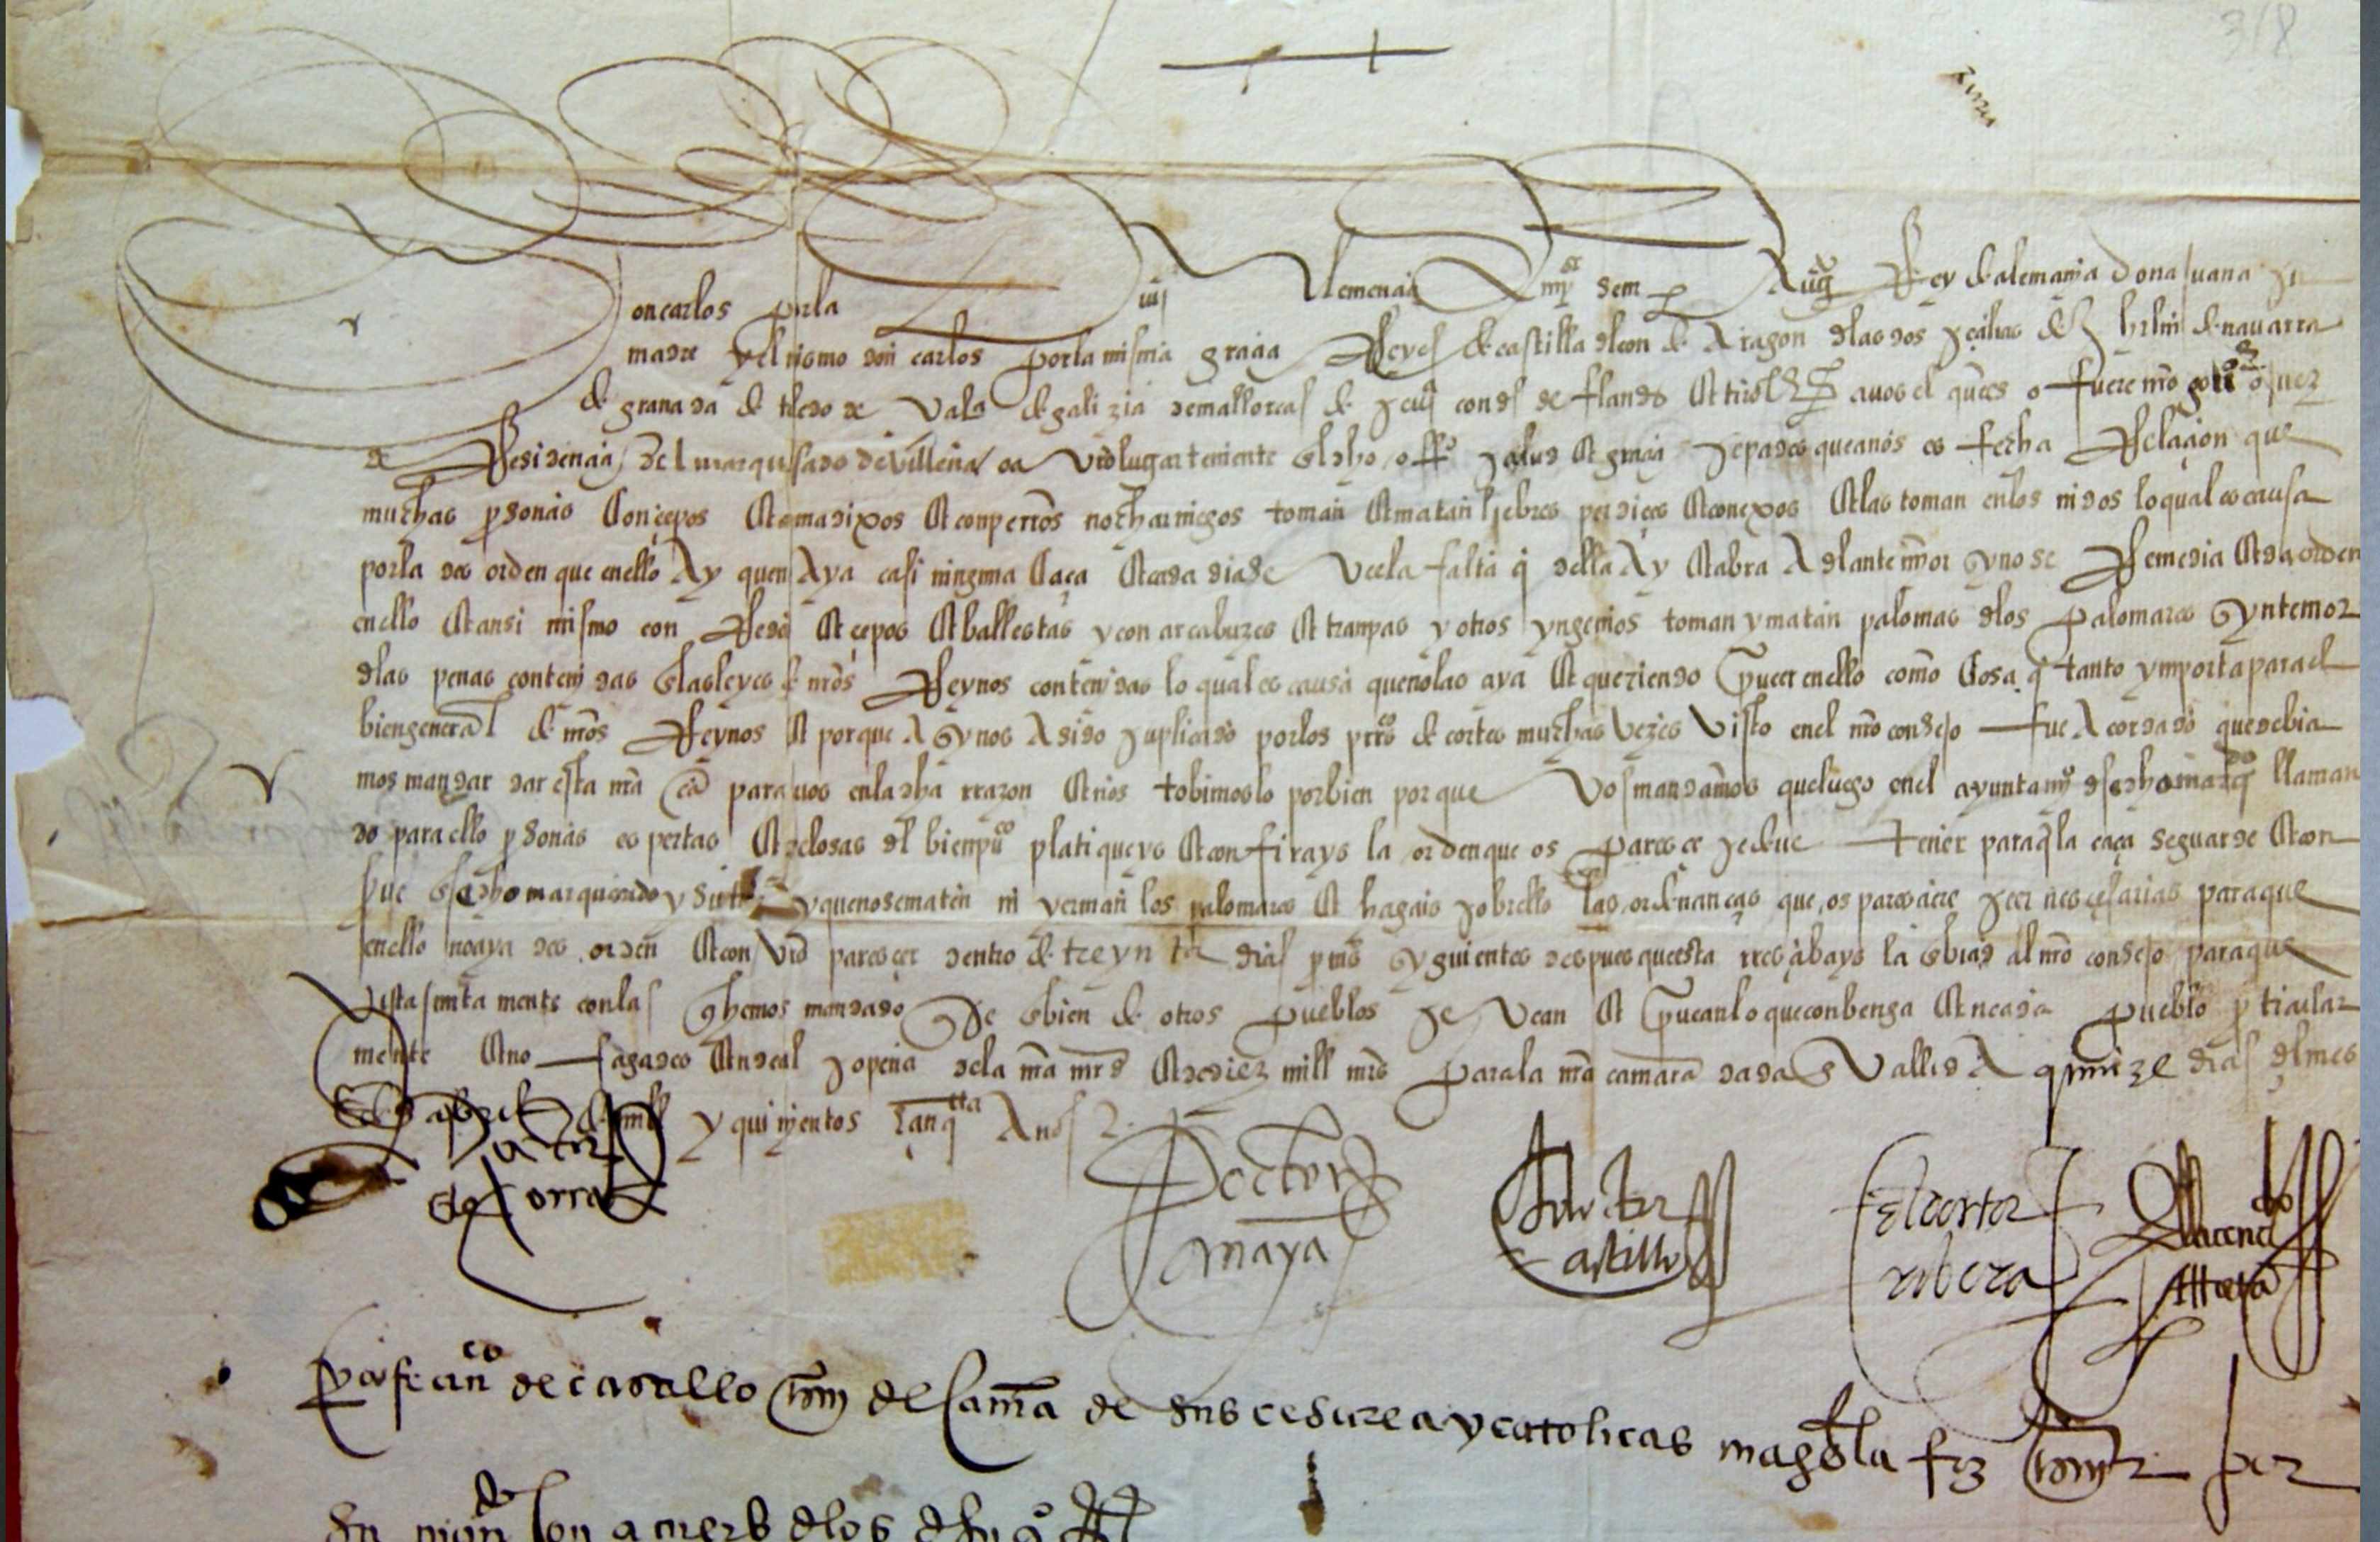 318
Don carlos por la diui clemençia Empr sem per Augto Rey de alemania dona juana su
madre y el mismo don carlos por la misma graçia Reyes de castilla de leon de Aragon de las dos seçilias de hrlm de navarra
de granada de toledo de Vala de galizia de mallorcas de seuª condes de flandes E tirol Etc a vos el ques o fuere nro gouor o juez
de Residençia del marquesado de villena o a Vro lugarteniente en el dho offº salud E graçia sepades que a nos es fecha Relaçion que
muchas personas Con çepos E armadixos E con perros nocharniegos toman E matan liebres perdiçes E conexos E las toman en los nidos lo qual es causa
por la des orden que en ello Ay que no Aya casi ninguna Caça E cada dia se Vee la falta q della Ay E abra Adelante mayor sy no se Remedia E da orden
en ello E ansi mismo con Redes E çepos E ballestas y con arcabuzes E tranpas y otros yngenios toman y matan palomas de los palomares syn temor
de las penas contenidas en las leyes de nros Reynos contenidas lo qual es causa que no las aya E queriendo proueer en ello como Cosa q tanto ymporta para el
bien general de nros Reynos E porque A sy nos A sido suplicado por los procres de cortes muchas Vezes Visto en el nro consejo fue Acordado que debia
mos mandar dar esta nra cª para vos en la dha rrazon E nos tobimoslo por bien por que Vos mandamos que luego en el ayuntamyº dese dho marqdo llaman
do para ello personas espertas E zelosas del bien puco platiqueys E confirays la orden que os paresce se deue tener para q la caça se guarde E con
serue en ese dho marquesado y su trra y que no se maten ni yerman los palomares E hagais sobrello las ordenanças que os paresçiere ser nesçesarias para que
en ello no aya des orden E con Vro paresçer dentro de treynta dias pros syguientes despues que esta rresçibays la enbiad al nro consejo para que
Vista juntamente con las q hemos mandado q se enbien de otros pueblos se Vean E prouean lo que conbenga E n cada pueblo particular
mente E no fagades Ende al so pena de la nra mrd E de diez mill mrs para la nra camara dada en Vallid A quinze dias del mes
de de mill y quinientos çinqta Años
Doctor
anaya
el doctor
ribera
Yo franco de castillo scrno de camª de sus cesarea y catolicas magdes la fiz screuir por
su mando con acuerdo de los del su qº